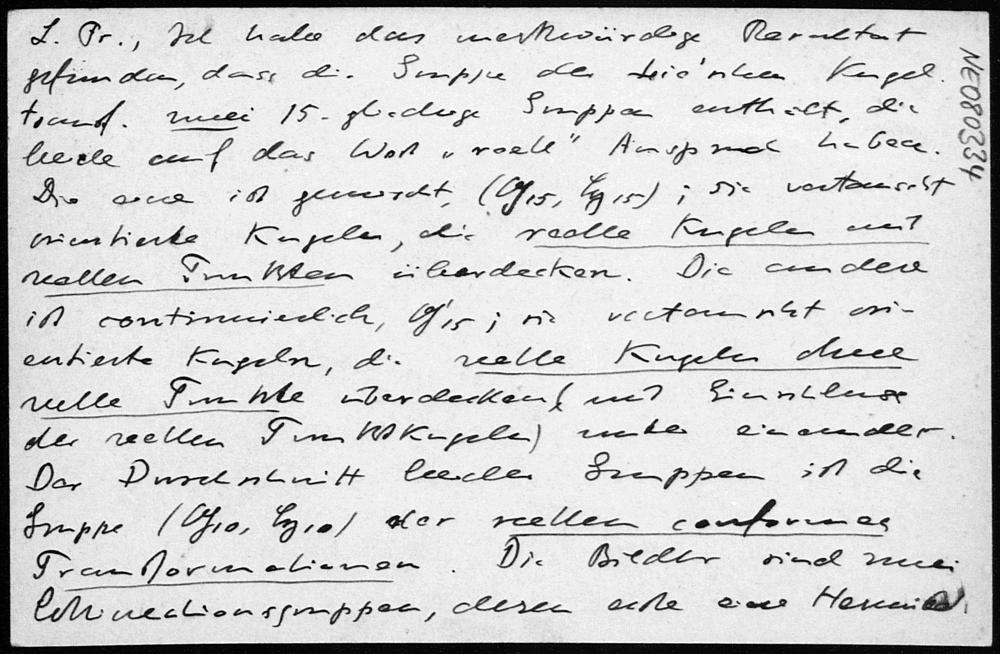 L. Pr., Ich habe das merkwürdige Resultat
gefunden, dass die Gruppe der Lie'schen Kugel-
transf. zwei 15-gliedrige Gruppen enthält, die
beide auf das Wort „reell" Anspruch haben.
Die eine ist gemischt, (G15, H15); sie vertauscht
orientierte Kugeln, die reelle Kugeln mit
reellen Punkten überdecken. Die andere
ist continuierlich, G'15; sie vertauscht ori-
entierte Kugeln, die reelle Kugeln ohne
reelle Punkte überdecken (mit Einschluss
der reellen Punktkugeln) unter einander.
Der Durchschnitt beider Gruppen ist die
Gruppe (G10, H10) der reellen conformen
Transformationen. Die Bilder sind zwei
Collineationsgruppen, deren erste eine
NE080334